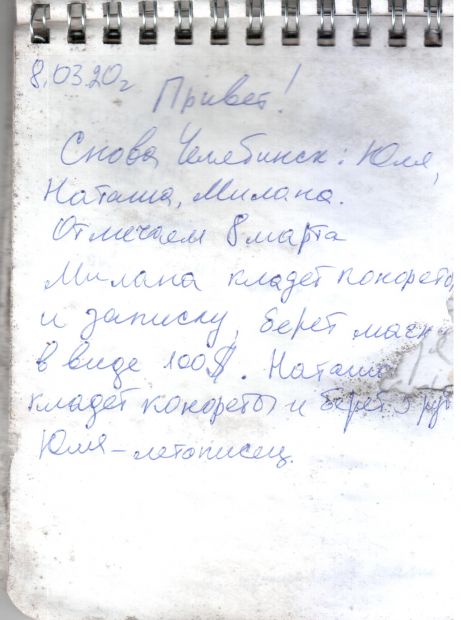 8.03.20г
Привет!
Снова Челябинск: Юля,
Наташа, Милана.
Отмечаем 8 марта
Милана кладет
и записку, берет
в виде 100$. Наташа
кладет конфеты и берет
Юля – летописец.